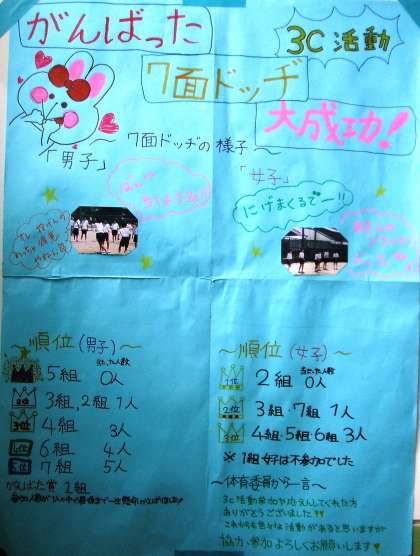 がんばった
3C 活動
7面ドッヂ
大成功!
～7面ドッヂの様子～
「男子」
「女子」
にげまくるでー!!
～順位(男子)～
当たった人数
5組 0人
2位 3組,2組 1人
3位 4組 3人
4位 6組 4人
5位 7組 5人
がんばった賞 1組
～順位(女子)～
当たった人数
1位 2組 0人
2位 3組・7組 1人
3位 4組・5組・6組 3人
※1組女子は不参加でした
～体育委員から一言～
3C活動参加や応えんしてくれた方
ありがとうございました!!
これからも色々な活動があると思いますが
協力・参加よろしくお願いします!